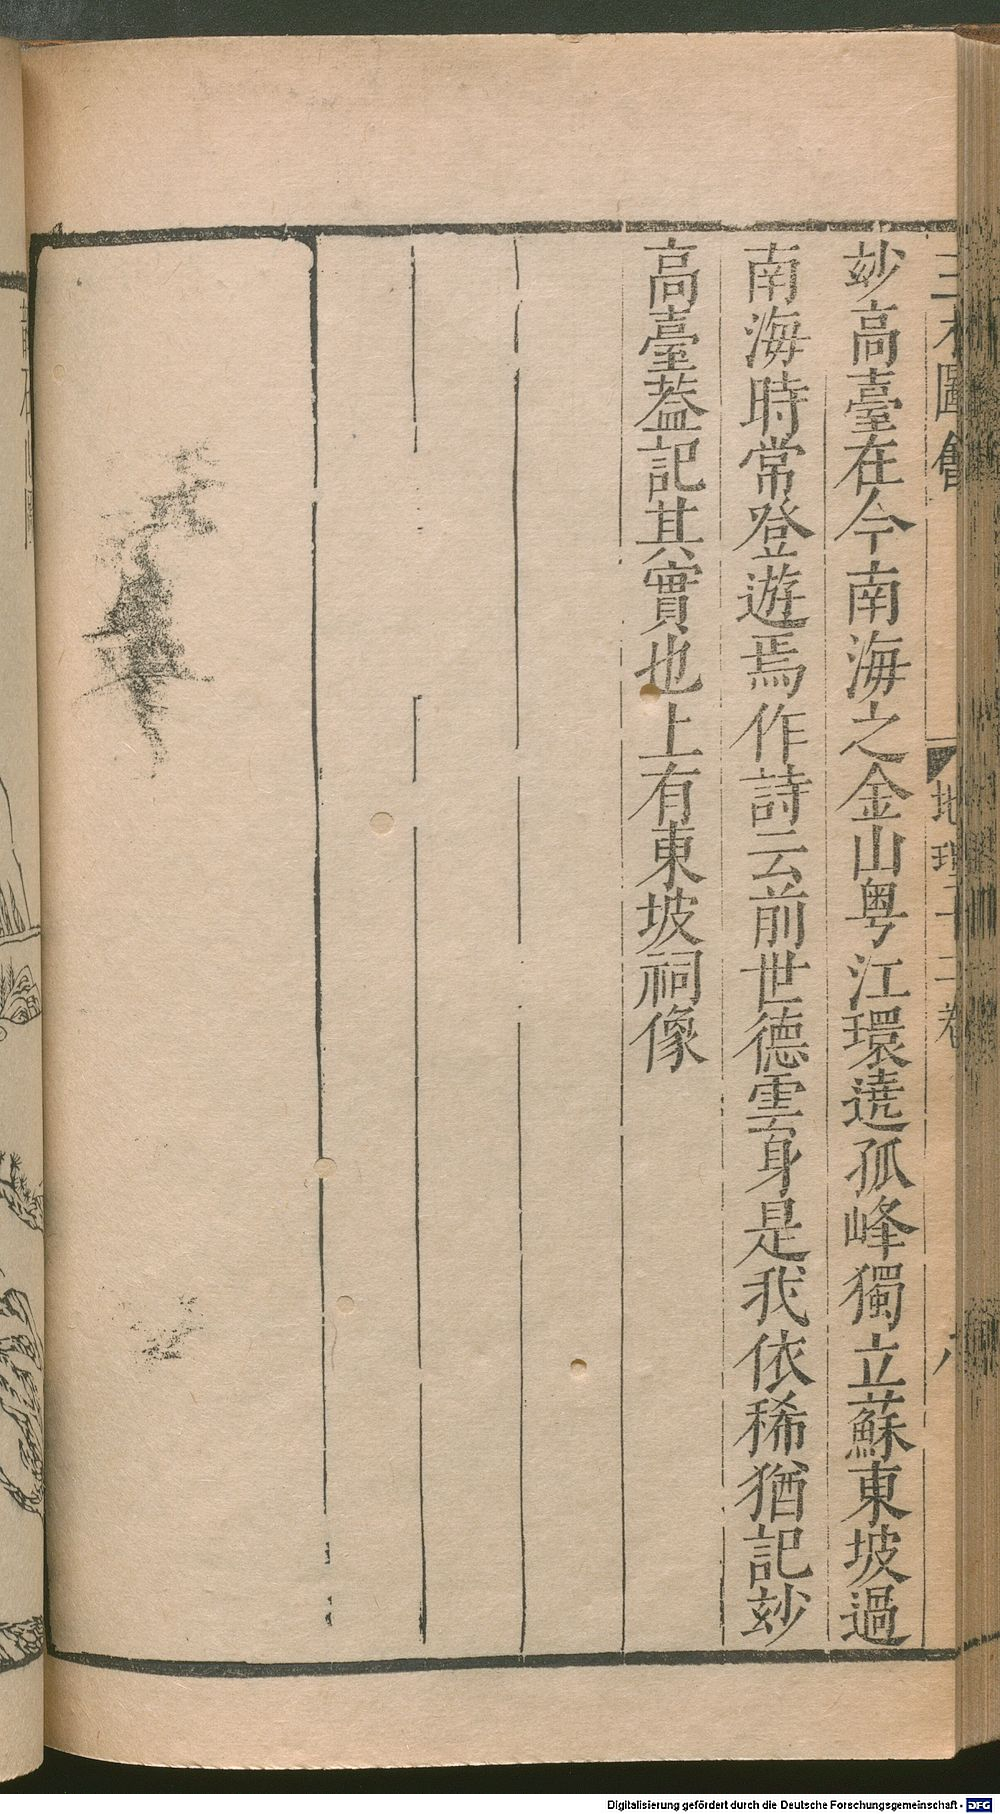 三才圖會 地理十二卷 八
玅高臺在今南海之金山粤江環遶孤峰獨立蘇東坡過
南海時常登遊焉作詩云前世德雲身是我依稀猶記玅
高臺葢記其實也上有東坡祠像
Digitalisierung gefördert durch die Deutsche Forschungsgemeinschaft - DFG